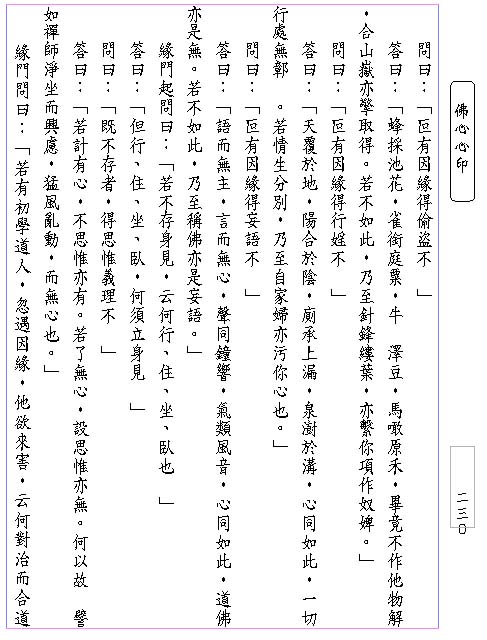 佛心心印
二三〇
問曰：「叵有因緣得偷盜不　」
答曰：「蜂採池花，雀銜庭粟，牛　澤豆，馬噉原禾，畢竟不作他物解
，合山嶽亦擎取得。若不如此，乃至針鋒縷葉，亦繫你項作奴婢。」
問曰：「叵有因緣得行婬不　」
答曰：「天覆於地，陽合於陰，廁承上漏，泉澍於溝，心同如此，一切
行處無鄣　。若情生分別，乃至自家婦亦污你心也。」
問曰：「叵有因緣得妄語不　」
答曰：「語而無主，言而無心，聲同鐘響，氣類風音，心同如此，道佛
亦是無。若不如此，乃至稱佛亦是妄語。」
緣門起問曰：「若不存身見，云何行、住、坐、臥也　」
答曰：「但行、住、坐、臥，何須立身見　」
問曰：「既不存者，得思惟義理不　」
答曰：「若計有心，不思惟亦有。若了無心，設思惟亦無。何以故　譬
如禪師淨坐而興慮，猛風亂動，而無心也。」
緣門問曰：「若有初學道人，忽遇因緣，他欲來害，云何對治而合道